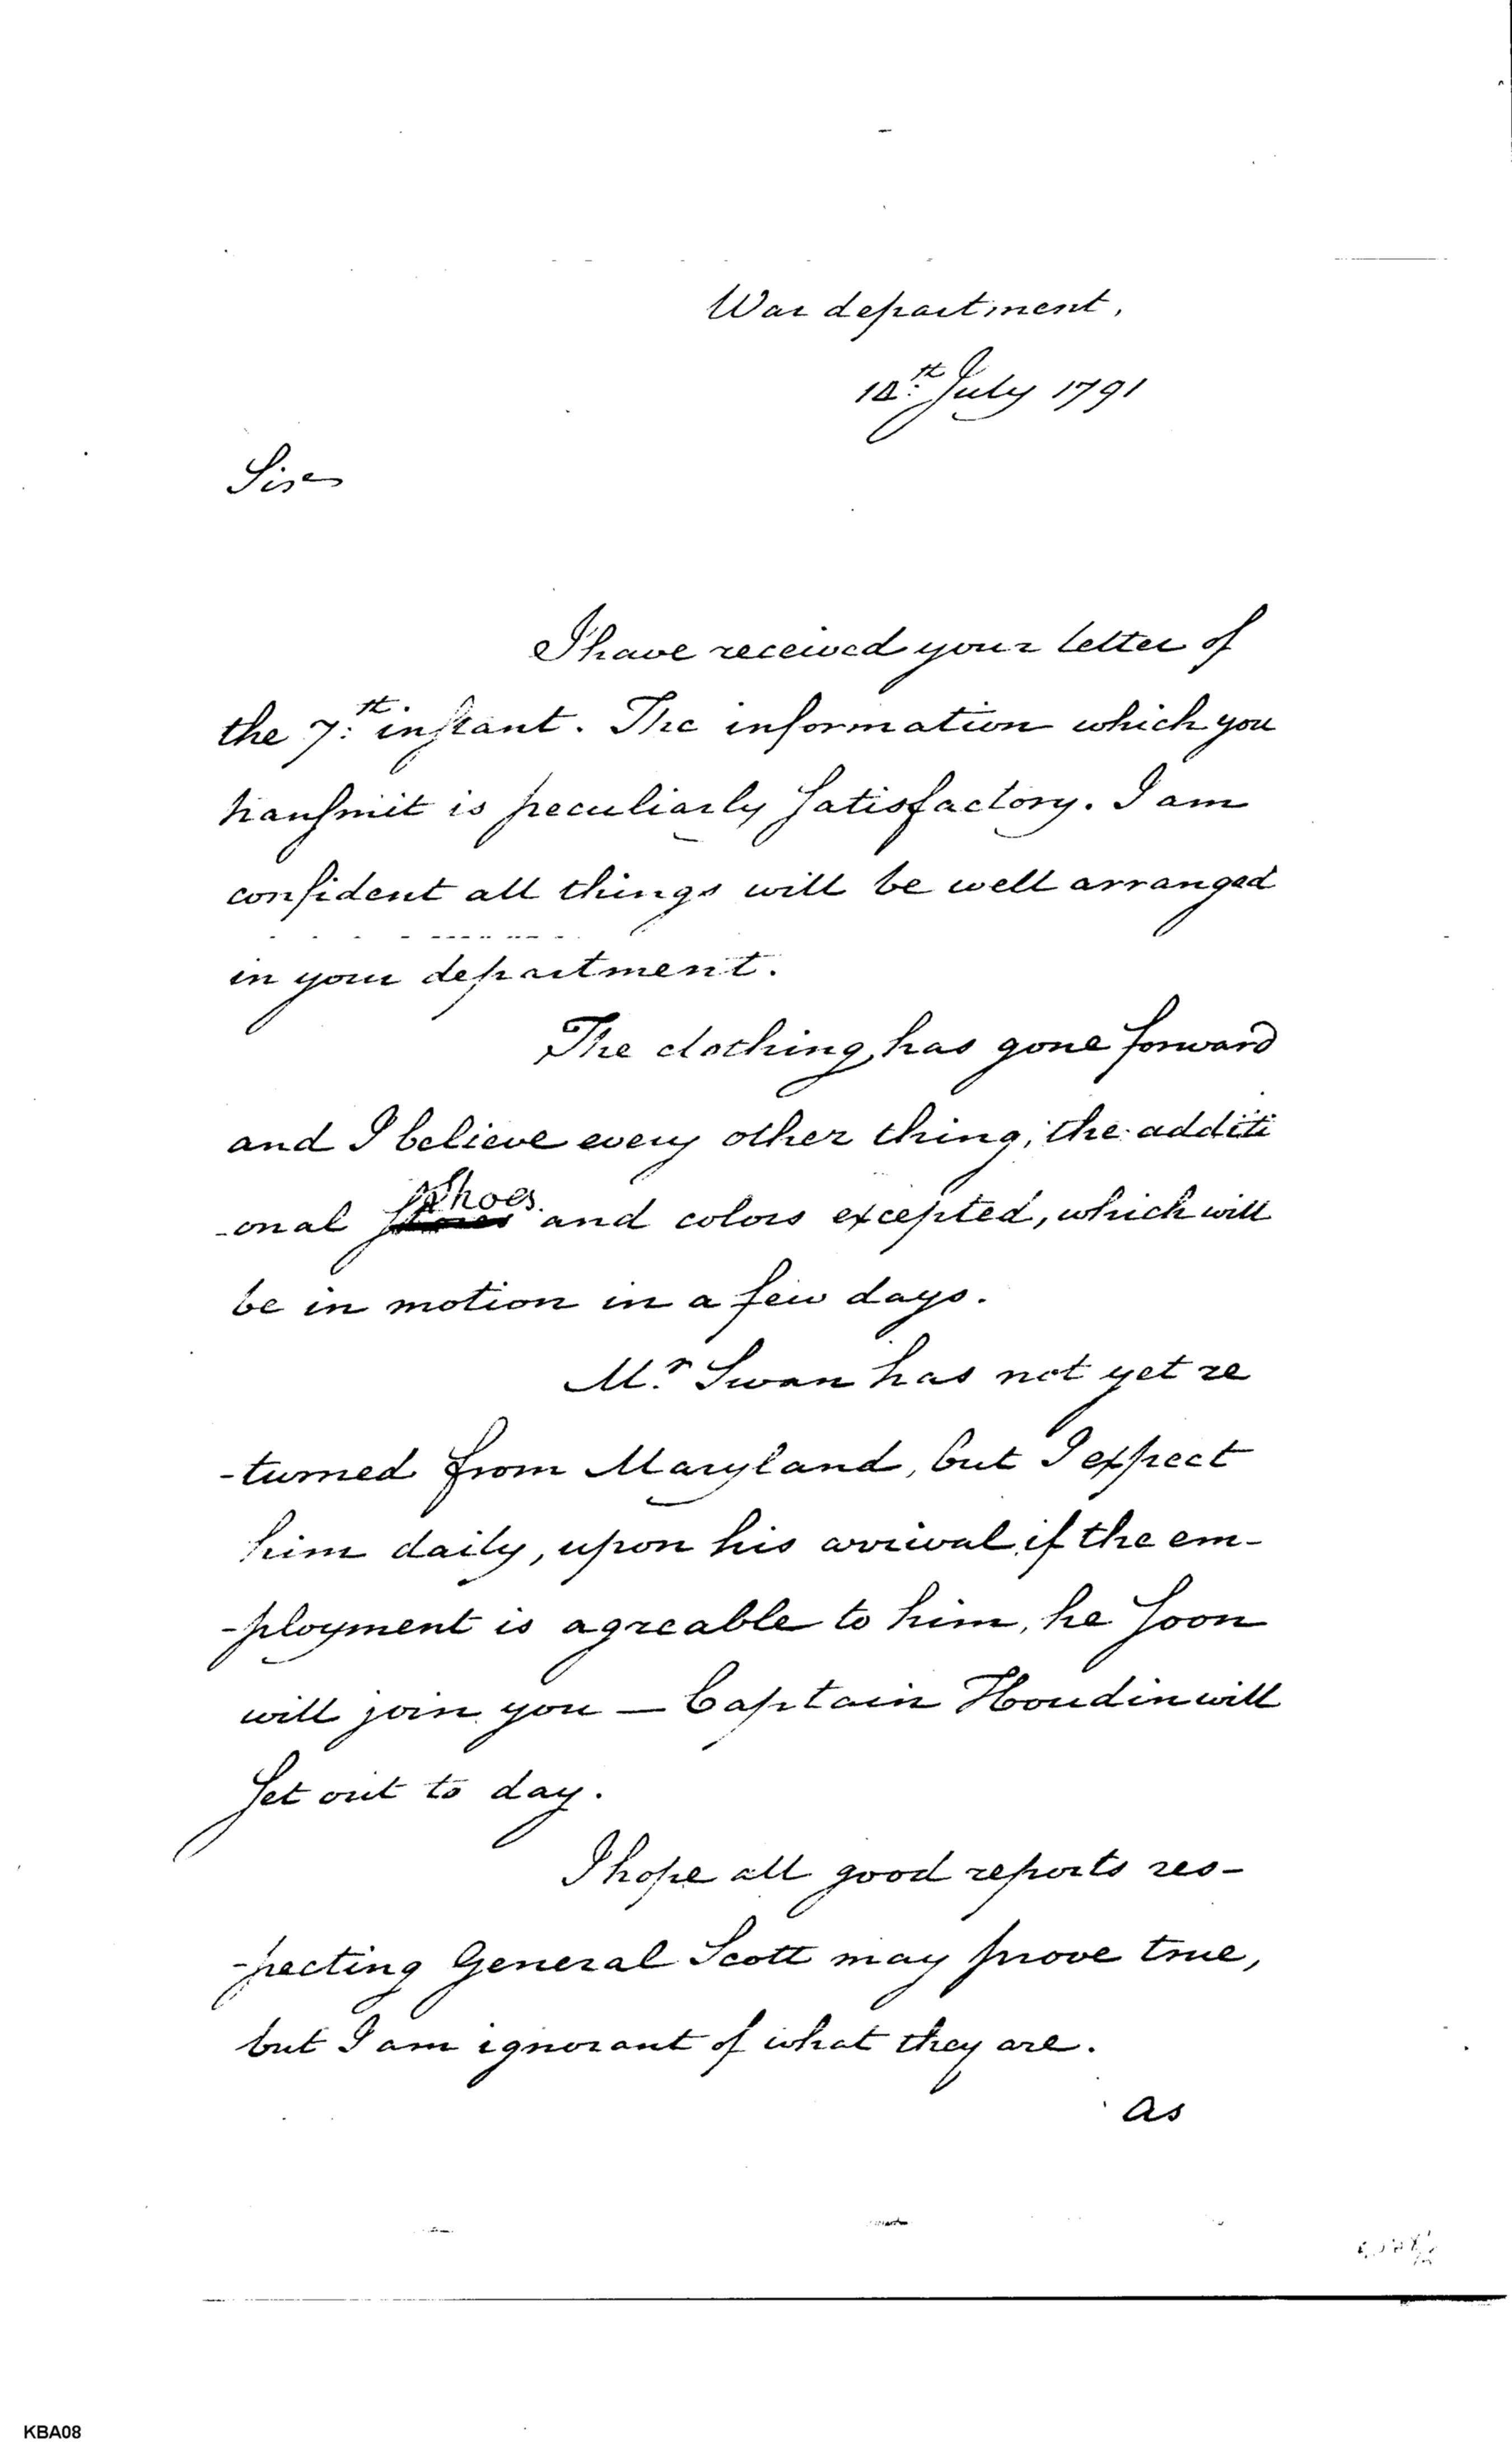 War department,
14th July 1791
Sir
I have received your letter of
the 7th instant. The information which you
transmit is peculiarly satisfactory. I am
confident all things will be well arranged
in your department.
The clothing has gone forward
and I believe every other thing, the additi
-onal shoes and colors excepted, which will
be in motion in a few days.
Mr. Swan has not yet re
-turned from Maryland, but I expect
him daily, upon his arrival if the em-
-ployment is agreable to him, he soon
will join you — Captain Houdin will
set out to day.
I hope all good reports res-
-pecting General Scott may prove true,
but I am ignorant of what they are.
as
KBA08